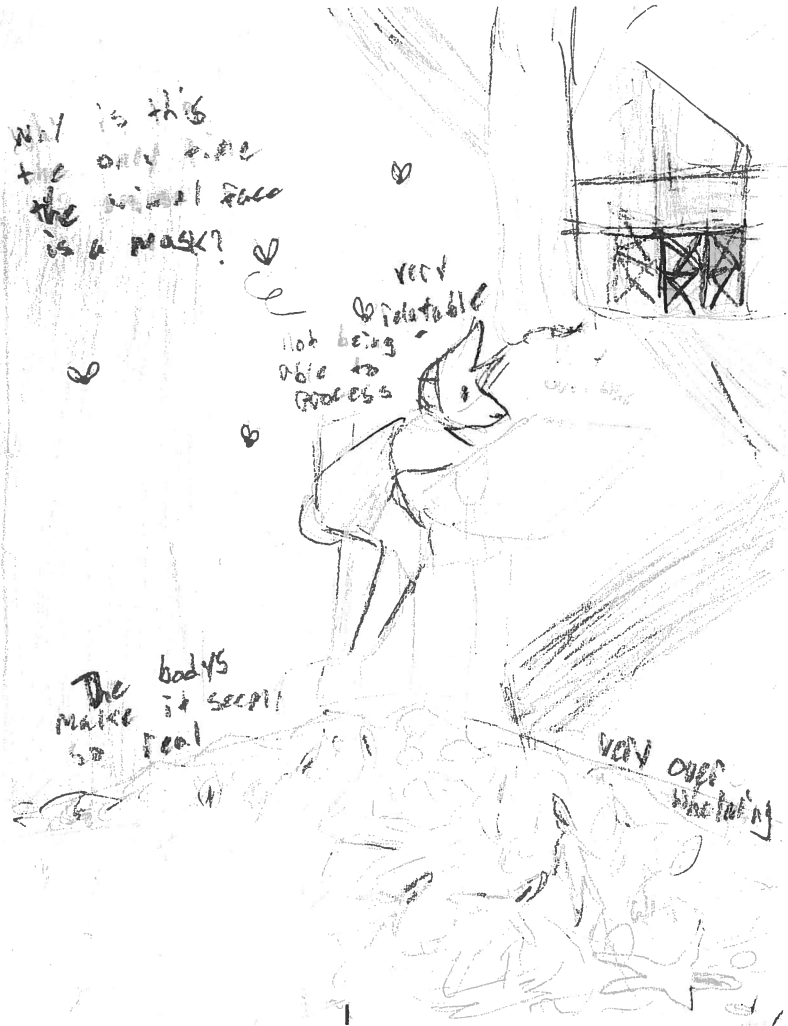 Why is this
the only time
the animal face
is a mask?
very
relatable
not being
able to
process
The bodys
make it seem
so real
very over